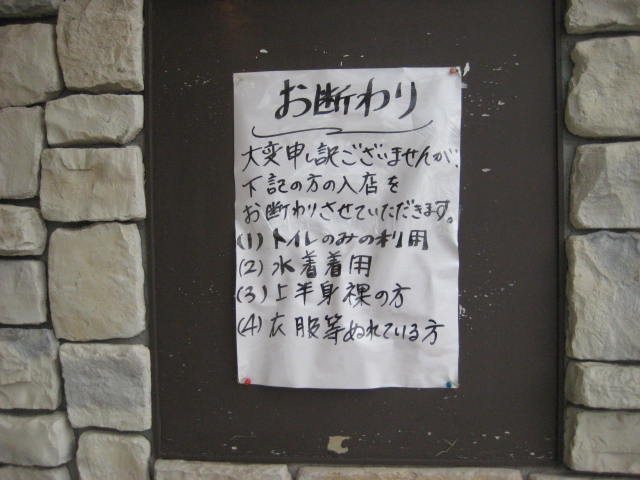 お断わり
大変申し訳ございませんが、
下記の方の入店を
お断わりさせていただきます。
(1) トイレのみの利用
(2) 水着着用
(3) 上半身裸の方
(4) 衣服等ぬれている方